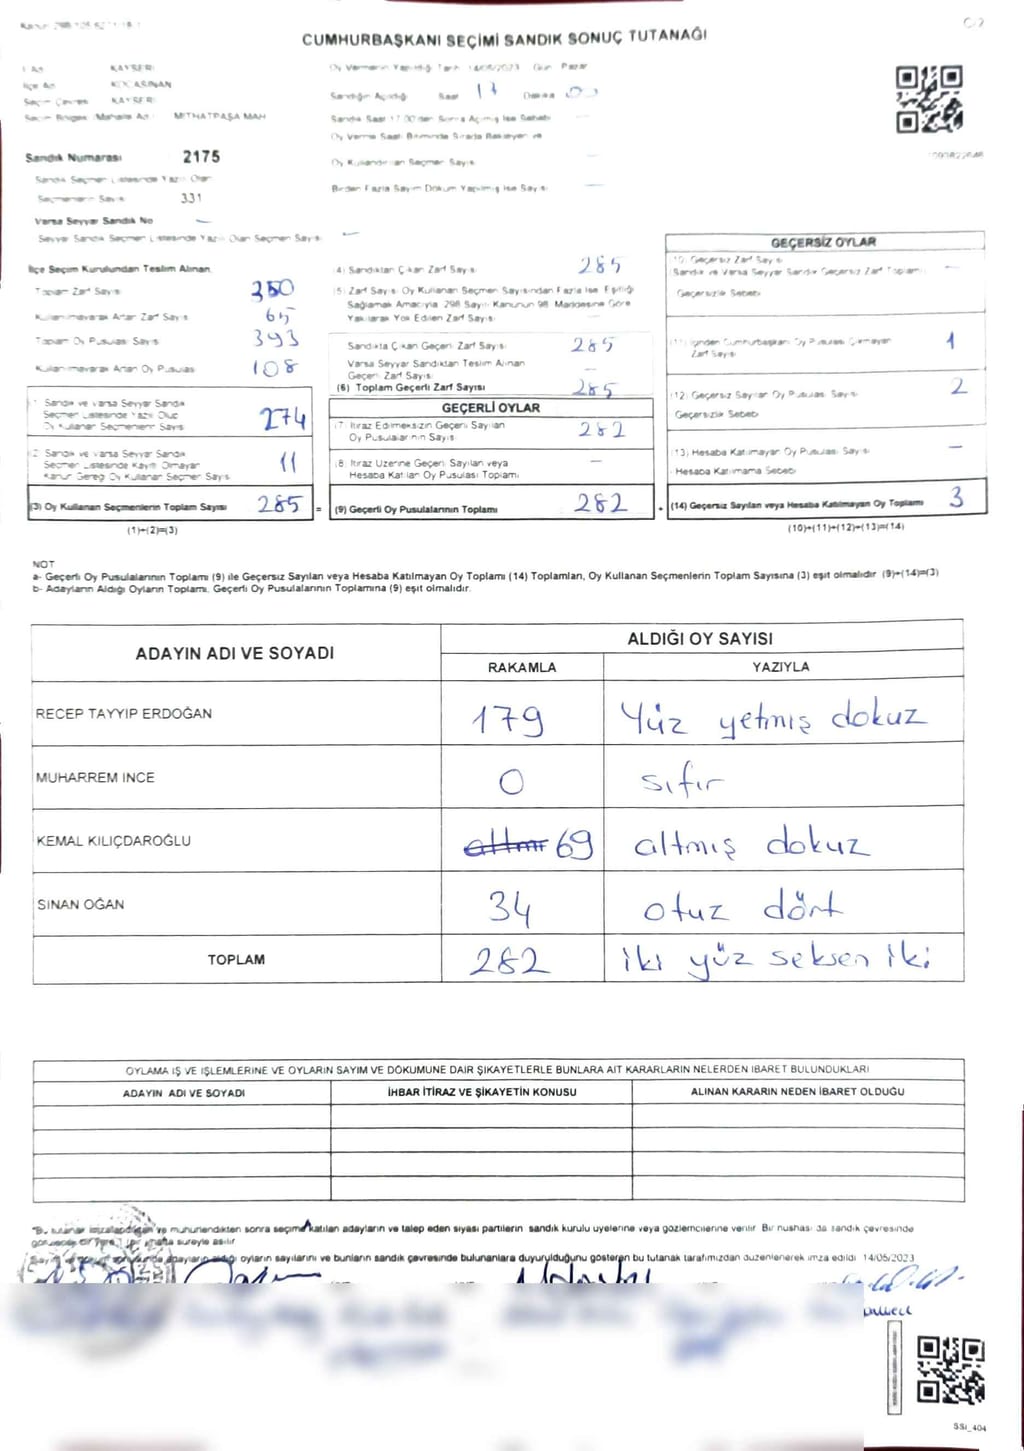 CUMHURBAŞKANI SEÇİMİ SANDIK SONUÇ TUTANAĞI
İl Adı KAYSERİ
İlçe Adı KOCASİNAN
Seçim Çevresi KAYSERİ
Seçim Bölgesi (Mahalle Adı) MİTHATPAŞA MAH
Sandık Numarası 2175
Sandık Seçmen Listesinde Yazılı Olan
Seçmenlerin Sayısı 331
Varsa Seyyar Sandık No —
Seyyar Sandık Seçmen Listesinde Yazılı Olan Seçmen Sayısı —
Oy Vermenin Yapıldığı Tarih 14/05/2023 Gün Pazar
Sandığın Açıldığı Saat 17 Dakika 00
Sandık Saat 17.00'den Sonra Açılmış İse Sebebi —
Oy Verme Saati Bitiminde Sırada Bekleyen ve
Oy Kullandırılan Seçmen Sayısı —
Birden Fazla Sayım Döküm Yapılmış İse Sayısı —
İlçe Seçim Kurulundan Teslim Alınan
Toplam Zarf Sayısı 350
Kullanılmayarak Artan Zarf Sayısı 65
Toplam Oy Pusulası Sayısı 393
Kullanılmayarak Artan Oy Pusulası 108
(1) Sandık ve Varsa Seyyar Sandık
Seçmen Listesinde Yazılı Olup
Oy Kullanan Seçmenlerin Sayısı 274
(2) Sandık ve Varsa Seyyar Sandık
Seçmen Listesinde Kayıtlı Olmayan
Kanun Gereği Oy Kullanan Seçmen Sayısı 11
(3) Oy Kullanan Seçmenlerin Toplam Sayısı 285 =
(1)+(2)=(3)
(4) Sandıktan Çıkan Zarf Sayısı 285
(5) Zarf Sayısı Oy Kullanan Seçmen Sayısından Fazla İse Eşitliği
Sağlamak Amacıyla 298 Sayılı Kanunun 98. Maddesine Göre
Yakılarak Yok Edilen Zarf Sayısı —
Sandıkta Çıkan Geçerli Zarf Sayısı 285
Varsa Seyyar Sandıktan Teslim Alınan
Geçerli Zarf Sayısı —
(6) Toplam Geçerli Zarf Sayısı 285
GEÇERLİ OYLAR
(7) İtiraz Edilmeksizin Geçerli Sayılan
Oy Pusulalarının Sayısı 282
(8) İtiraz Üzerine Geçerli Sayılan veya
Hesaba Katılan Oy Pusulası Toplamı —
(9) Geçerli Oy Pusulalarının Toplamı 282 +
GEÇERSİZ OYLAR
(10) Geçersiz Zarf Sayısı
(Sandık ve Varsa Seyyar Sandık Geçersiz Zarf Toplamı) —
Geçersizlik Sebebi
(11) İçinden Cumhurbaşkanı Oy Pusulası Çıkmayan
Zarf Sayısı 1
(12) Geçersiz Sayılan Oy Pusulası Sayısı 2
Geçersizlik Sebebi
(13) Hesaba Katılmayan Oy Pusulası Sayısı —
Hesaba Katılmama Sebebi
(14) Geçersiz Sayılan veya Hesaba Katılmayan Oy Toplamı 3
(10)+(11)+(12)+(13)=(14)
NOT
a- Geçerli Oy Pusulalarının Toplamı (9) ile Geçersiz Sayılan veya Hesaba Katılmayan Oy Toplamı (14) Toplamları, Oy Kullanan Seçmenlerin Toplam Sayısına (3) eşit olmalıdır (9)+(14)=(3)
b- Adayların Aldığı Oyların Toplamı, Geçerli Oy Pusulalarının Toplamına (9) eşit olmalıdır.
ADAYIN ADI VE SOYADI ALDIĞI OY SAYISI
RAKAMLA YAZIYLA
RECEP TAYYIP ERDOĞAN 179 Yüz yetmiş dokuz
MUHARREM INCE 0 sıfır
KEMAL KILIÇDAROĞLU 69 altmış dokuz
SINAN OĞAN 34 otuz dört
TOPLAM 282 iki yüz seksen iki
OYLAMA İŞ VE İŞLEMLERİNE VE OYLARIN SAYIM VE DÖKÜMÜNE DAİR ŞİKAYETLERLE BUNLARA AİT KARARLARIN NELERDEN İBARET BULUNDUKLARI
ADAYIN ADI VE SOYADI İHBAR İTİRAZ VE ŞİKAYETİN KONUSU ALINAN KARARIN NEDEN İBARET OLDUĞU
*Bu tutanak imzalandıktan ve mühürlendikten sonra seçime katılan adayların ve talep eden siyasi partilerin sandık kurulu üyelerine veya gözlemcilerine verilir. Bir nüshası da sandık çevresinde
oyların sayılarını ve bunların sandık çevresinde bulunanlara duyurulduğunu gösteren bu tutanak tarafımızdan düzenlenerek imza edildi 14/05/2023
SSI_404